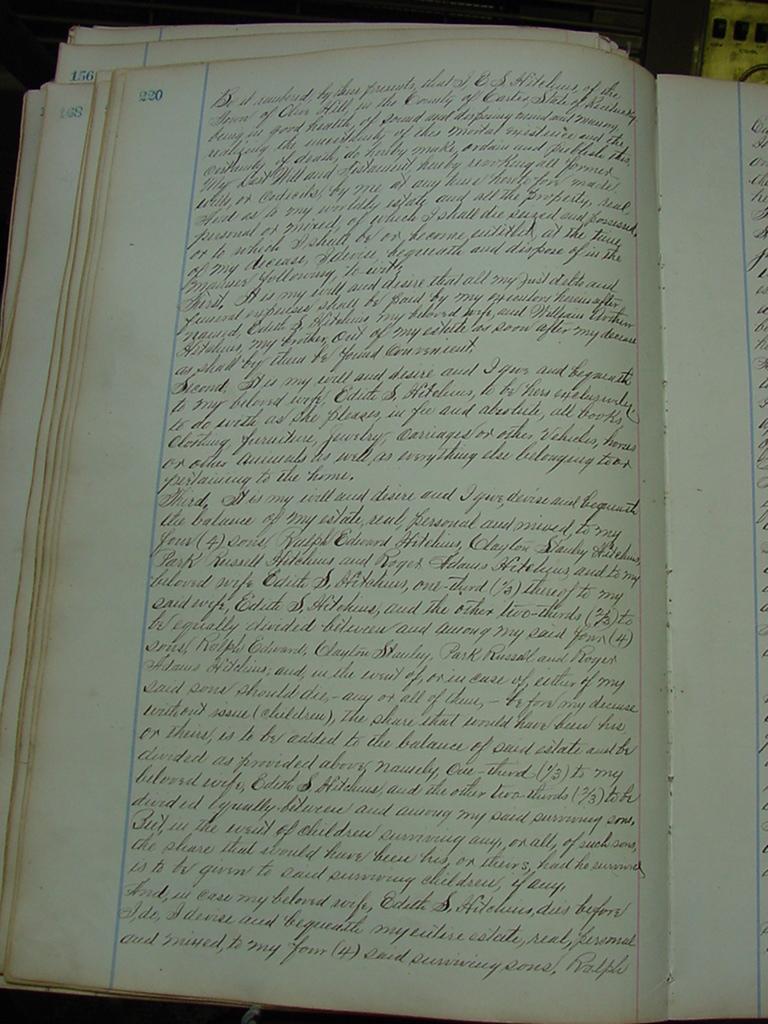 156
168
220
Be it remembered, by these presents, that I E. S. Hitchins, of the
Town of Olive Hill, in the County of Carter, State of Kentucky
being in good health, of sound and disposing mind and memory
realizing the uncertainty of this mortal existence and the
certainty of death, do hereby make, ordain and publish this
My Last Will and Testament, hereby revoking all former
wills, or Codicils, by me at any time heretofore made
And as to my worldly estate and all the property, real,
personal or mixed, of which I shall die seized and possessed
or to which I shall be or become entitled at the time
of my decease, I devise, bequeath and dispose of in the
manner following, to wit;
First, It is my will and desire that all my just debts and
funeral expenses shall be paid by my executors hereinafter
named, Edith S. Hitchins my beloved wife and William
Hitchins, my brother, out of my estate as soon after my decease
as shall by them be found convenient.
Second, It is my will and desire and I give and bequeath
to my beloved wife, Edith S. Hitchins, to be hers exclusively
to do with as she pleases, in fee and absolute, all books,
Clothing, furniture, jewelry, carriages or other, Vehicles, horses
or other animals as well, as everything else belonging to or
pertaining to the home.
Third, It is my will and desire and I give, devise and bequeath
the balance of my estate, real, personal and mixed, to my
four (4) sons, Ralph Edward Hitchins, Clayton Stanley Hitchins,
Park Russell Hitchins and Roger Adams Hitchins, and to my
beloved wife Edith S. Hitchins, one-third (1/3) thereof to my
said wife, Edith S. Hitchins, and the other two-thirds (2/3) to
be equally divided between and among my said four (4)
sons, Ralph Edward, Clayton Stanley, Park Russell and Roger
Adams Hitchins; and, in the event of, or in case of, either of my
said sons should die, - any or all of them, - before my decease
without issue (children), the share that would have been his
or theirs, is to be added to the balance of said estate and be
divided as provided above, namely, One-third (1/3) to my
beloved wife, Edith S. Hitchins, and the other two-thirds (2/3) to be
divided equally between and among my said surviving sons,
But, in the event of children surviving any, or all, of such sons,
the share that would have been his, or theirs, had he survived
is to be given to said surviving children, if any.
And, in case my beloved wife, Edith S. Hitchins, dies before
I do, I devise and bequeath my entire estate, real, personal
and mixed, to my four (4) said surviving sons, Ralph